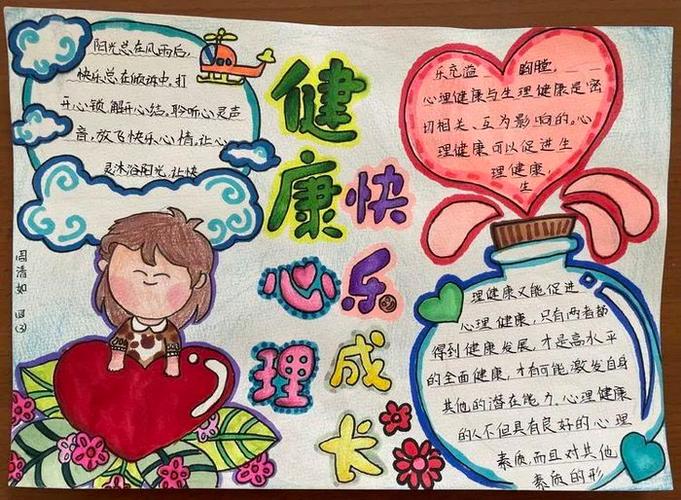 阳光总在风雨后,
快乐总在倾诉中,打
开心锁,解开心结,聆听心灵声
音,放飞快乐心情,让心
灵沐浴阳光,让快
健康
心理
快乐
成长
乐充溢 胸膛,
心理健康与生理健康是密
切相关、互为影响的,心
理健康可以促进生
理健康,
生
理健康又能促进
心理健康,只有两者都
得到健康发展,才是高水平
的全面健康,才有可能激发自身
其他的潜在能力,心理健康
的人不但具有良好的心理
素质,而且对其他
素质的形
周清如 四(3)